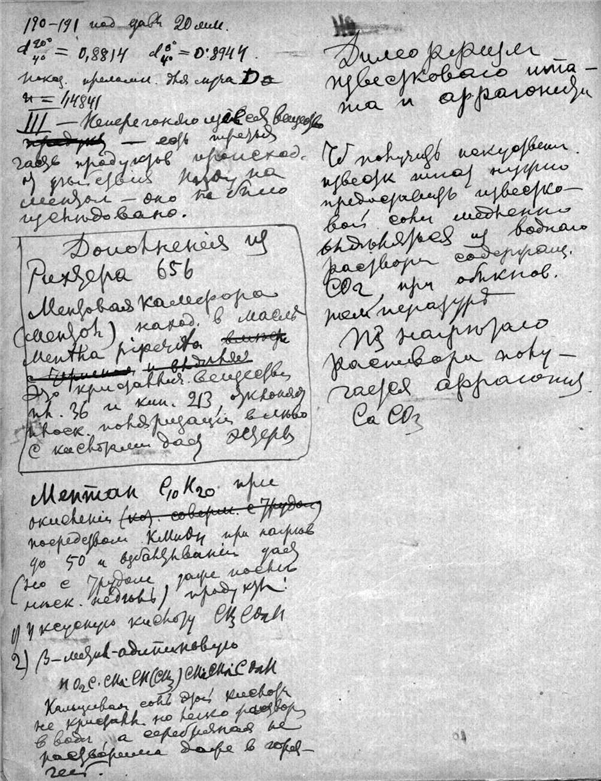 190-191 под давл 20 мм.
d 20°/4° = 0,8814 d 0°/4° = 0.8944
показ. преломл. для луча D
n = 1,4841
III — Неперегоняющееся вещество
— есть третья
часть продуктов происход.
от действия на
ментол — оно не было
исследовано.
Дополнения из
Рихтера 656
Ментовая камфора
(ментол) наход. в масле
Mentha piperita
Это кристалич вещество
пл. 36 и кип. 213, отклоняя
плоск. поляризации влево
С кислотами дает эфиры
Ментен C10H20 при
окислении
посредством KMnO4 при нагрев
до 50 и взбалтывании дает
(но с трудом даже после
) продукты:
1) Уксусную кислоту CH3CO2H
2) β-метил-адипиновую
HO2C·CH2·CH(CH3)CH2CH2CO2H
Кальциевая соль этой кислоты
не кристалл но легко раствор.
в воде а серебряная не
растворима даже в горя-
чей.
Диморфизм
известковаго шпа-
та и аррагонита
Чтоб получить искуствен.
известк шпат нужно
предоставить известко-
вой соли медленно
выделяться из воднаго
раствора содержащ.
CO2 при обыкнов.
температуре
Из нагретаго
раствора полу-
чается аррагонит
CaCO3